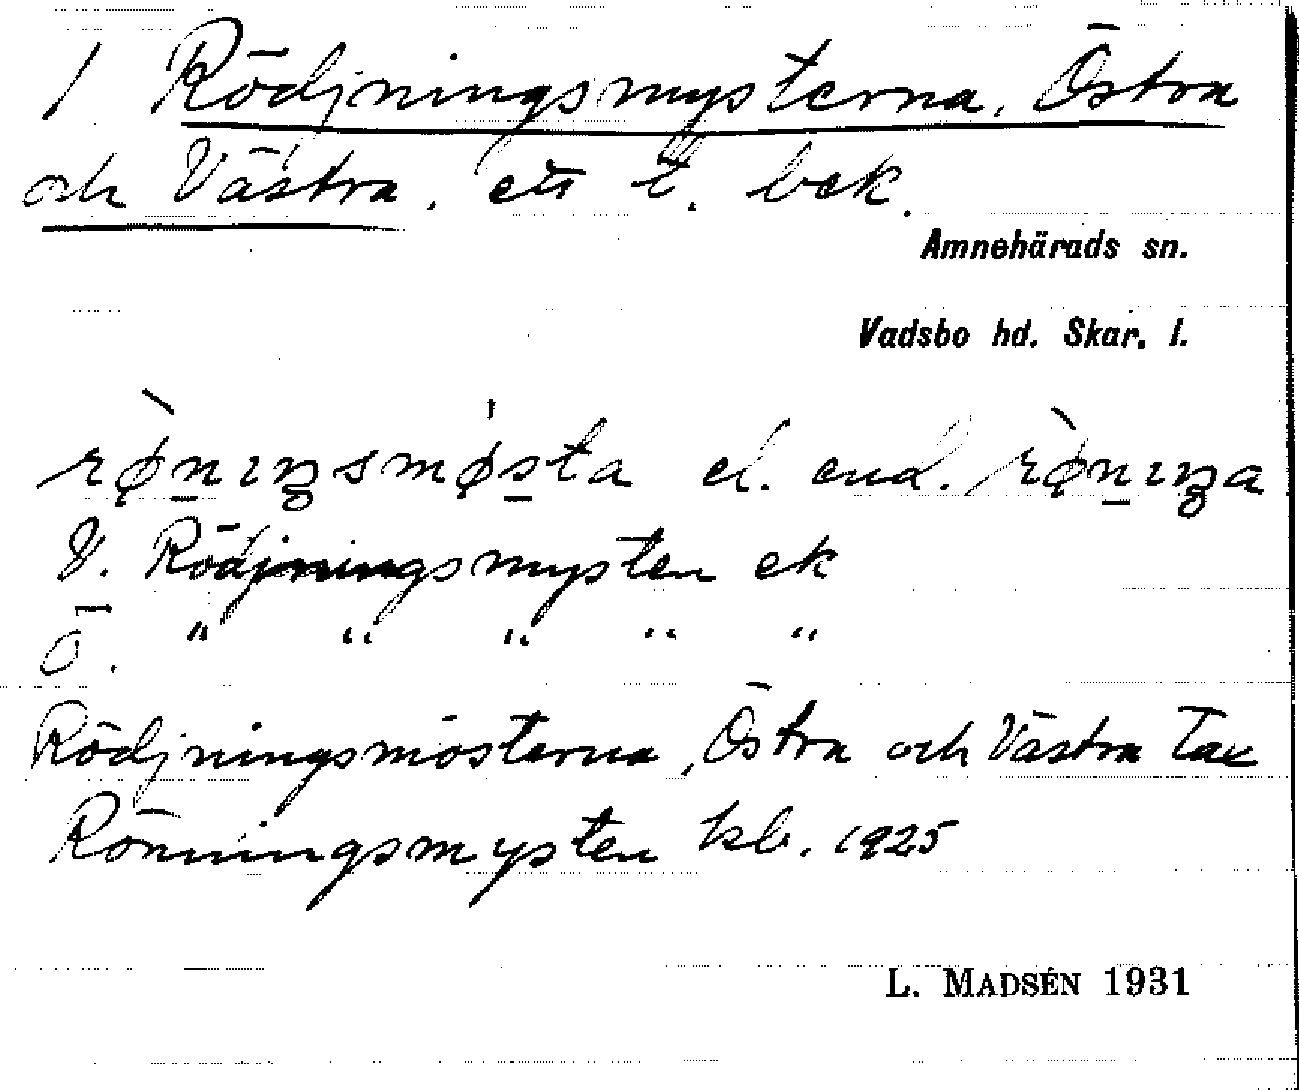 / Rödjningsmysterna, Östra
och Västra. ett t. bek.
Amnehärads sn.
Vadsbo hd. Skar. l.
rø̀nıŋsmø̍sta el. end. rø̀nıŋa
V. Rödjningsmysten ek
Ö. " " " " "
Rödjningsmösterna, Östra och Västra Tax
Rönningsmysten kb. 1925
L. MADSÉN 1931